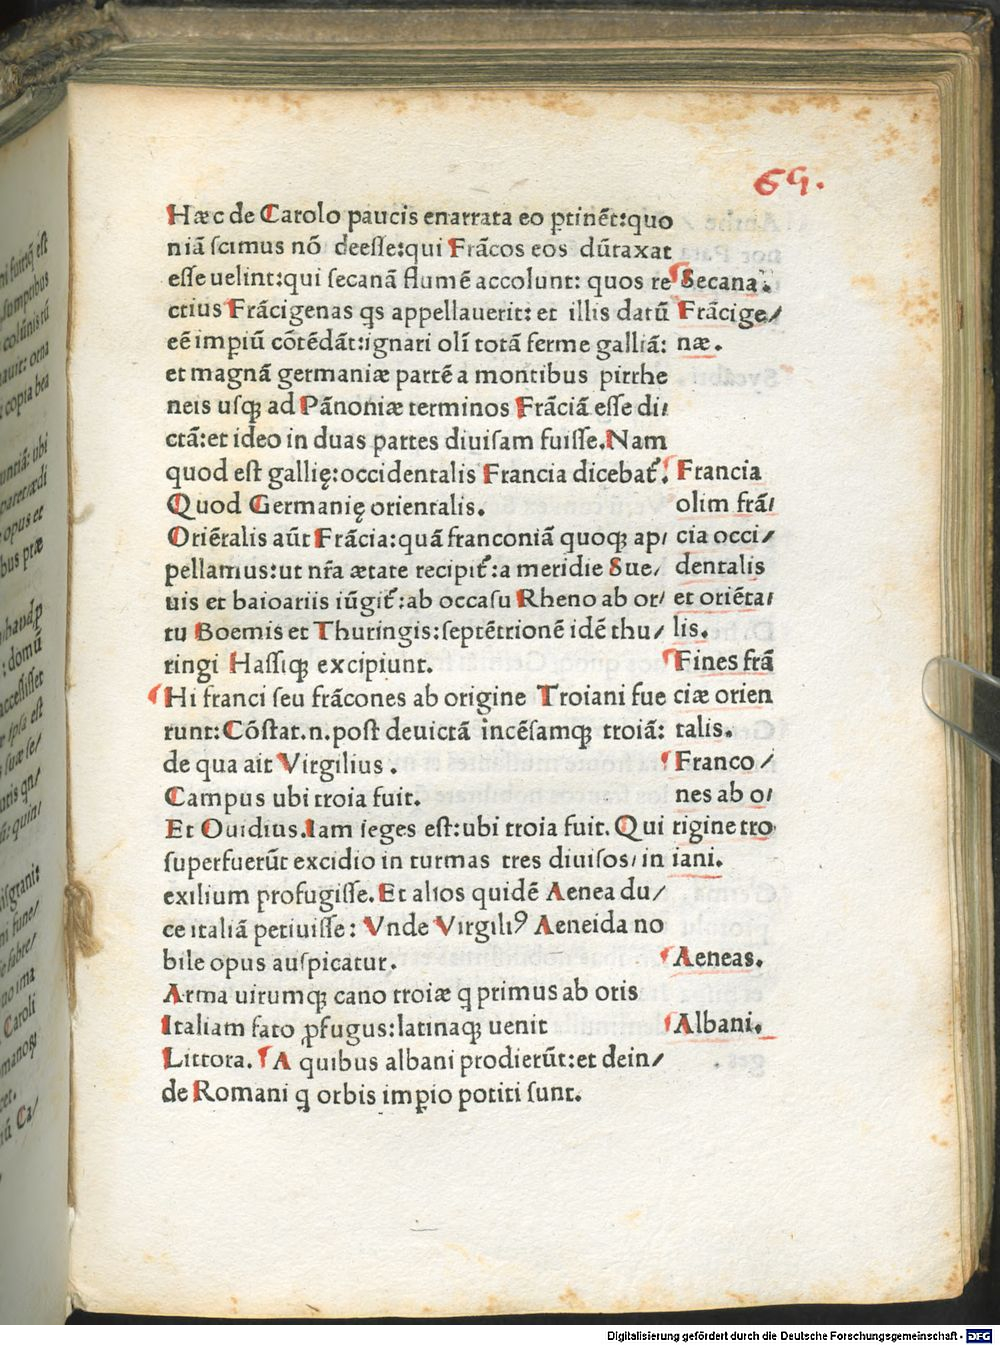 69.
Hæc de Carolo paucis enarrata eo ꝑtinēt:quo
niā scimus nō deesse:qui Frācos eos dūtaxat
esse uelint:qui secanā flumē accolunt: quos re
ctius Frācigenas qs appellauerit: et illis datū
eē impiū cōtēdāt:ignari olī totā ferme galliā:
et magnā germaniæ partē a montibus pirrhe
neis usqꝫ ad Pānoniæ terminos Frāciā esse di/
ctā:et ideo in duas partes diuisam fuisse.Nam
quod est gallię:occidentalis Francia dicebat᷑.
Quod Germanię orientalis.
Oriētalis aūt Frācia:quā franconiā quoqꝫ ap/
pellamus:ut nr̄a ætate recipit᷑:a meridie Sue/
uis et baioariis iūgit᷑:ab occasu Rheno ab or/
tu Boemis et Thuringis:septētrionē idē thu/
ringi Hassiqꝫ excipiunt.
Hi franci seu frācones ab origine Troiani fue
runt:Cōstat.n.post deuictā incēsamqꝫ troiā:
de qua ait Virgilius .
Campus ubi troia fuit.
Et Ouidius.Iam seges est:ubi troia fuit. Qui
superfuerūt excidio in turmas tres diuisos/in
exilium profugisse.Et alios quidē Aenea du/
ce italiā petiuisse: Vnde Virgiliꝰ Aeneida no
bile opus auspicatur.
Arma uirumqꝫ cano troiæ q primus ab oris
Italiam fato ꝓfugus:latinaqꝫ uenit
Littora. ¶A quibus albani prodierūt:et dein/
de Romani q orbis impio potiti sunt.
¶Secana.
Frācige/
næ.
¶Francia
olim frā/
cia occi/
dentalis
et oriēta/
lis.
¶Fines frā
ciæ orien
talis.
¶Franco /
nes ab o/
rigine tro
iani.
¶Aeneas.
¶Albani.
Digitalisierung gefördert durch die Deutsche Forschungsgemeinschaft - DFG